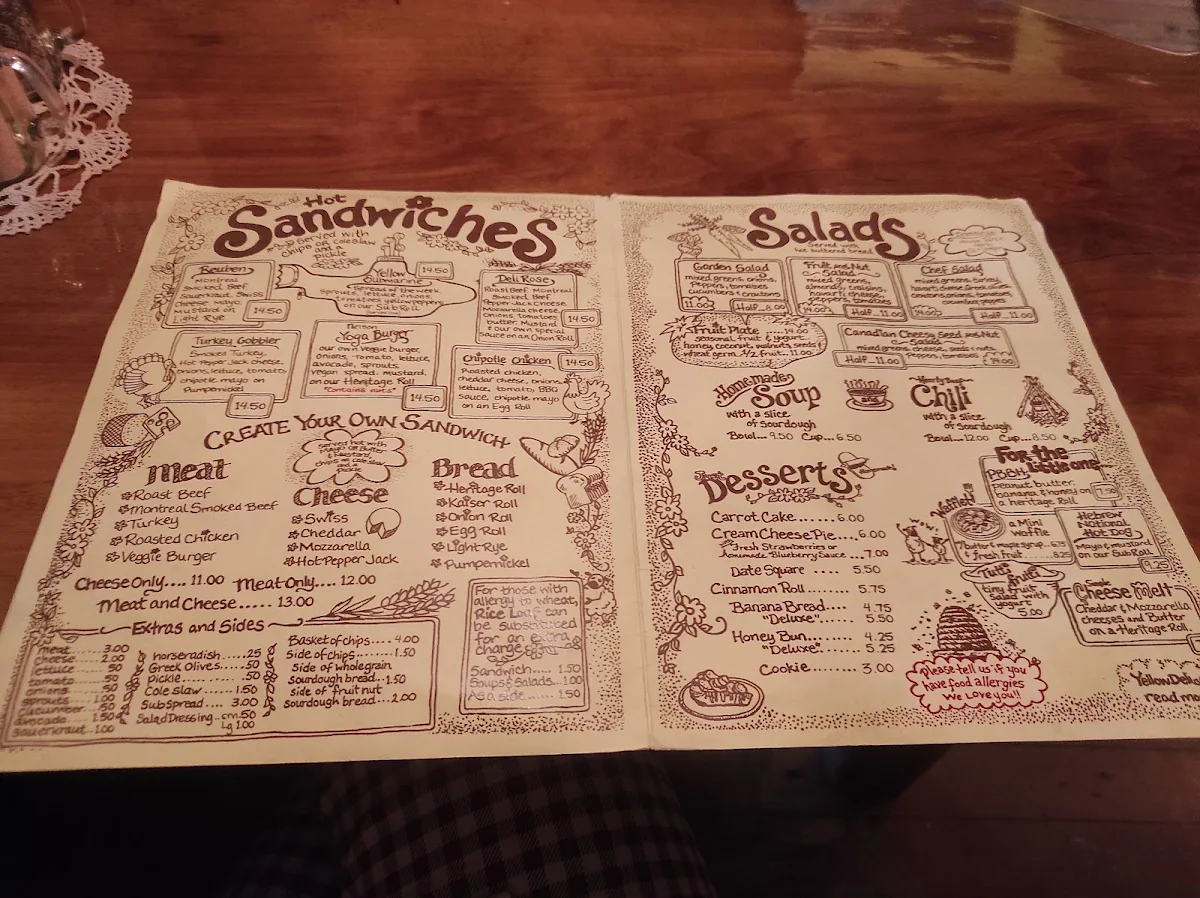 Hot
Sandwiches
Served with
chips or coleslaw
pickle
Reuben
Montreal
Smoked Beef
Sauerkraut, Swiss
cheese, mayo
Mustard on
Light Rye
14.50
Yellow
Submarine
14.50
Spread of the week
sprouts, lettuce, onions,
tomatoes, yellow peppers
on our Sub Roll
Deli Rose
Roast Beef, Montreal
Smoked Beef
Pepper Jack Cheese
Mozzarella cheese
onions, tomatoes
butter, Mustard
& our own special
Sauce on an Onion Roll
14.50
Turkey Gobbler
Smoked Turkey,
Hot Pepper Jack cheese,
onions, lettuce, tomato,
chipotle mayo on
Pumpernickel
14.50
Yoga Burger
our own Veggie burger,
onions, tomato, lettuce,
avocado, sprouts
vegan spread, mustard,
on our Heritage Roll
*contains nuts*
14.50
Chipotle Chicken
14.50
Roasted chicken,
cheddar cheese, onions
lettuce, tomato, BBQ
sauce, chipotle mayo
on an Egg Roll
Create Your Own Sandwich
Meat
Roast Beef
Montreal Smoked Beef
Turkey
Roasted Chicken
Veggie Burger
Served hot with
Cheese
Swiss
Cheddar
Mozzarella
Hot Pepper Jack
Bread
Heritage Roll
Kaiser Roll
Onion Roll
Egg Roll
Light Rye
Pumpernickel
Cheese Only.... 11.00 Meat Only.... 12.00
Meat and Cheese ..... 13.00
Extras and Sides
meat 3.00
cheese 2.00
lettuce .50
tomato .50
onions .50
sprouts 1.00
cucumber .50
avocado 1.50
sauerkraut 1.00
horseradish .25
Greek Olives .50
pickle .50
Cole slaw 1.50
Sub Spread 3.00
Salad Dressing sm .50
Lg 1.00
Basket of chips.... 4.00
Side of chips .... 1.50
Side of wholegrain
sourdough bread.. 1.50
side of fruit nut
Sourdough bread... 2.00
For those with
allergy to wheat,
Rice Loaf can
be substituted
for an extra
charge
Sandwich..... 1.50
Soups & Salads.. 1.00
As a side.... 1.50
Salads
Served with
hot buttered bread
Garden Salad
mixed greens, onions,
Peppers, tomatoes
cucumbers & croutons
Half.. 8.00
Fruit and Nut
Salad
mixed greens,
almonds, raisins,
14.00
Half.. 11.00
Chef Salad
mixed greens, turkey,
14.00
Half... 11.00
Fruit Plate ..... 14.00
seasonal fruit & yogurt
honey, coconut, walnuts, seeds &
wheat germ. 1/2 fruit... 11.00
Canadian Cheesy Seed and Nut
Salad
mixed greens, cheese, seeds & nuts,
Peppers, tomatoes
Half... 11.00
14.00
Home-made
Soup
with a slice
of sourdough
Bowl... 9.50 Cup... 6.50
Chili
with a slice
of sourdough
Bowl... 12.00 Cup... 8.50
Desserts
Carrot Cake....... 6.00
Cream Cheese Pie.... 6.00
Fresh Strawberries or
homemade Blueberry Sauce ... 7.00
Date Square .... 5.50
Cinnamon Roll .... 5.75
Banana Bread.... 4.75
"Deluxe"..... 5.50
Honey Bun..... 4.25
"Deluxe"..... 5.25
Cookie ..... 3.00
For the
little one...
PBBH
peanut butter,
banana & honey on
a heritage Roll
7.50
Waffle!
a Mini
Waffle
fresh fruit ...... 8.25
Hebrew
National
Hot Dog
Mayo & mustard
on our Sub Roll
9.25
Tutti
fruiti
tiny fruit
with
yogurt
5.00
Cheese Melt
Cheddar & Mozzarella
cheeses and Butter
on a Heritage Roll
Please tell us if you
have food allergies
We Love you!!
Yellow Deli
read m